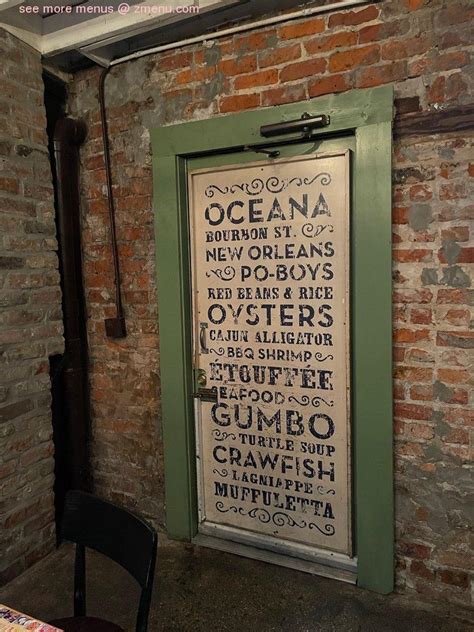 see more menus @ zmenu.com
OCEANA
BOURBON ST.
NEW ORLEANS
PO-BOYS
RED BEANS & RICE
OYSTERS
CAJUN ALLIGATOR
BBQ SHRIMP
ÉTOUFFÉE
SEAFOOD
GUMBO
TURTLE SOUP
CRAWFISH
LAGNIAPPE
MUFFULETTA